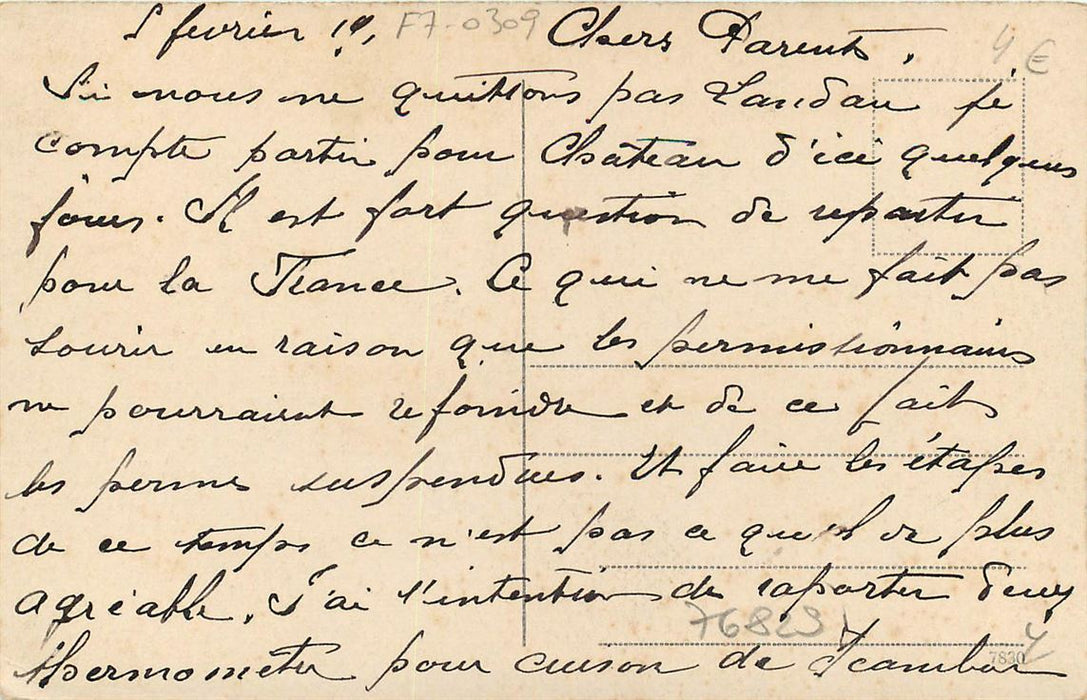 5 fevrier 19, F7-0309 Chers Parents,
4 €
Si nous ne quittons pas Landau je
compte partir pour Château d'ici quelques
jours. Il est fort question de repartir
pour la France. Ce qui ne me fait pas
sourir en raison que les permissionnaires
ne pourraient rejoindre et de ce fait
les permes suspendues. Et faire les étapes
de ce temps ce n'est pas ce qu'il de plus
agréable. J'ai l'intention de raporter deux
76829
thermometre pour cuison de
7830